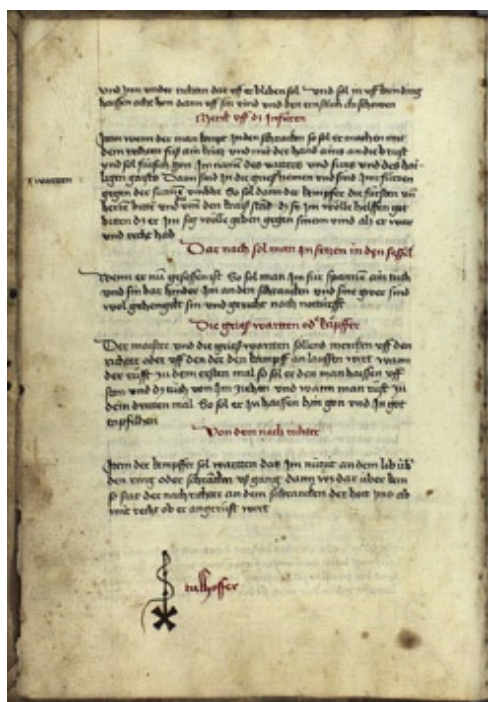 und Inn under richten das er bliben sol und sol in uff kain ding
haissen oder den dann uff sin und den ernstlich an schowen
Merck uff di Infüren
Item wenn der man kumpt In den schrancken so sol er machen mit
dem rechten füß ain krütz und mit der hand ains an die brust
und sol fürsich gon Im namen des vatters und suns und des hai
ligen gaists Dann sind In die grieß nemen und sind Inn füren
gegen der sunnen So sol dann der kempfer die fürsten und
herren bitten und umb den krais stand di sy Im wölle helffen got
bitten di er Im sig wölle geben gegen sinem vind als er war
und recht hab
Dar nach sol man In setzen in den sessel
Wenn er nu gesessen ist So sol man Im für spannen ain tuch
und sin bar hinder Im an den schrancken und sine gwer sind
wol gehengkt sin und gericht nach notturfft
Die grieß wartten od kempffer
Der maister und die grieß wartten sollend mercken uff den
richter oder uff den der den kampff an laussen wirt wann
der rüfft zu dem ersten mal so sol er den man haissen uff
ston und di tuch von Im ziehen und wann man rüfft zu
dem dritten mal So sol er In haissen hin gon und In got
enpfilhen
Von dem nach richter
Item der kempffer sol wartten das Im nüntz an dem lib üb
den ring oder schrancken uß gang dann was dar über kem
so stat der nach richter an dem schrancken der hout Ims ab
mit recht ob er angerüfft wirt
tallhoffer